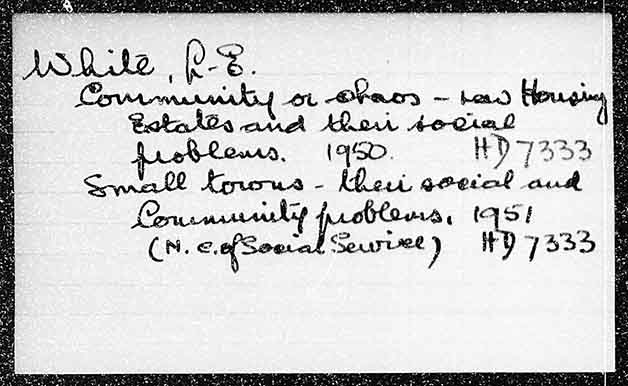 White, L-E.
Community or chaos - new Housing
Estates and their social
problems. 1950. HD 7333
Small towns - their social and
Community problems. 1951
(N. C. of Social Service) HD 7333